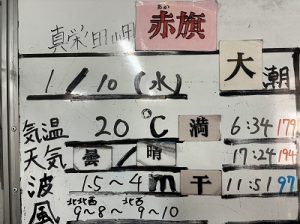 真栄田岬 赤旗
あか
1/10(水) 大潮
気温 20℃ 満 6:34 179
天気 曇/晴 17:24 194
波 1.5~4m 干 11:51 97
北北西 北西
風 9~8~9~10